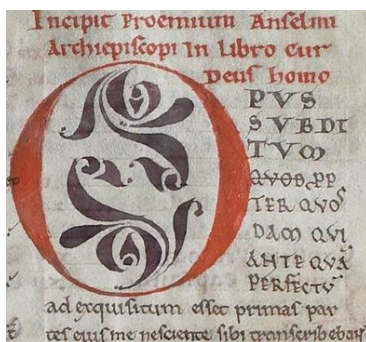 Incipit Proemium Anselmi
Archiepiscopi In Libro Cur
Deus homo
OPVS
SVBDI
TVM
QVOD PP
TER QVOS
DAM QVI
ANTE QVA
PERFECTV
ad exquisitum esset primas par
tes eius me nesciente sibi transcribebant